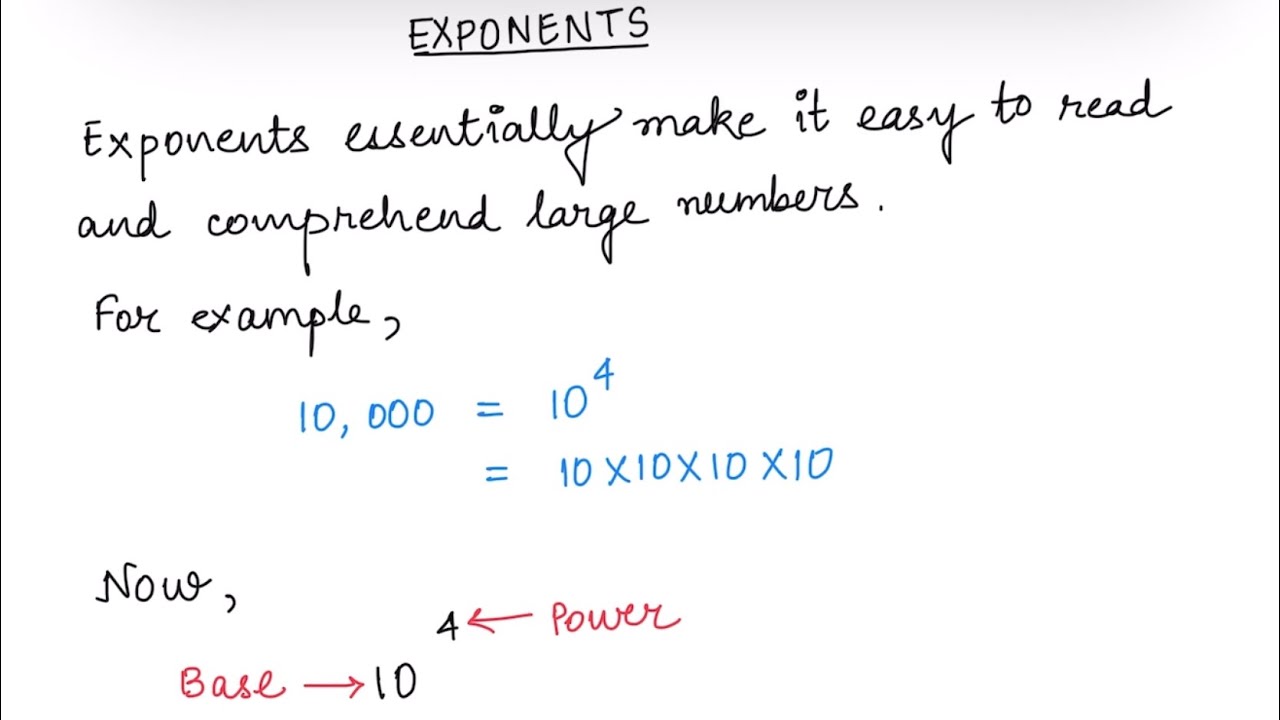 EXPONENTS
Exponents essentially make it easy to read
and comprehend large numbers.
For example,
10,000 = 10⁴
= 10×10×10×10
Now,
4 ← Power
Base → 10